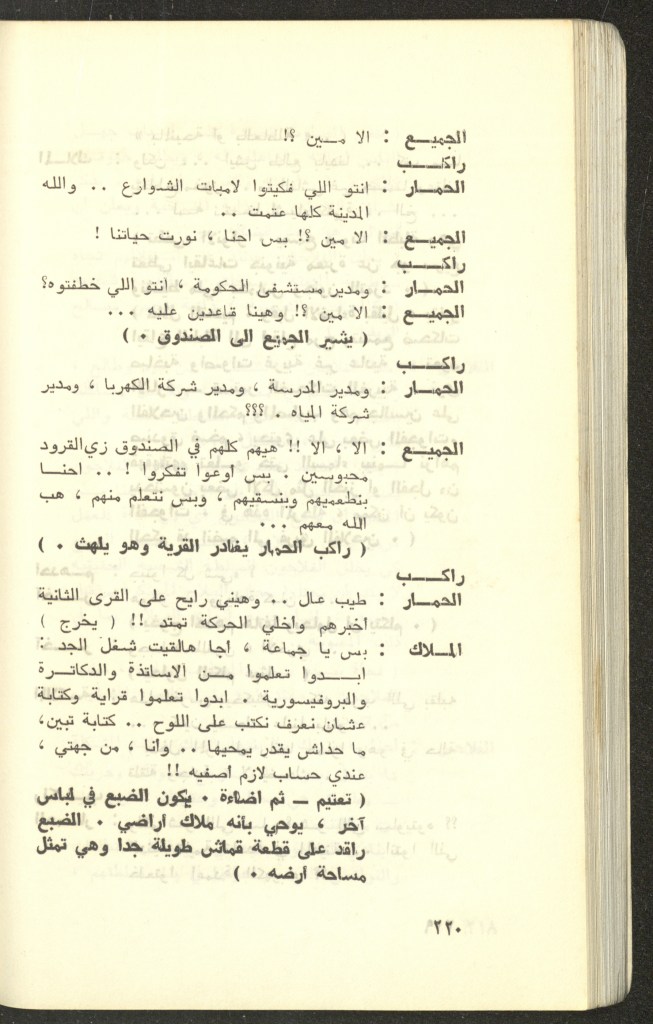 الجميـــع : الا مـــين ؟!
راكـــب
الحمـار : انتو اللي فكيتوا لامبات الشوارع .. والله
المدينة كلها عتمت ..
الجميـــع : الا مين ؟! بس احنا ، نورت حياتنا !
راكـــب
الحمـار : ومدير مستشفى الحكومة ، انتو اللي خطفتوه؟
الجميـــع : الا مين ؟! وهينا قاعدين عليه ...
( يشير الجميع الى الصندوق . )
راكـــب
الحمـار : ومدير المدرسة ، ومدير شركة الكهربا ، ومدير
شركة المياه . ؟؟؟
الجميـــع : الا ، الا !! هيهم كلهم في الصندوق زي القرود
محبوسين . بس اوعوا تفكروا ! .. احنــا
بنطعميهم وبنسقيهم ، وبس نتعلم منهم ، هب
الله معهم ...
( راكب الحمار يغادر القرية وهو يلهث . )
راكـــب
الحمـار : طيب عـال .. وهيني رايح على القرى الثانية
اخبرهم واخلي الحركة تمتد !! ( يخرج )
المـلاك : بس يا جماعة ، اجا هالقيت شغل الجد :
ابـــدوا تعلموا مـــن الاساتذة والدكاتـرة
والبروفيسورية . ابدوا تعلموا قراية وكتابة
عشان نعرف نكتب على اللوح .. كتابة تبين،
ما حداش يقدر يمحيها .. وانا ، من جهتي ،
عندي حساب لازم اصفيه !!
( تعتيم ــ ثم اضاءة . يكون الضبع في لباس
آخر ، يوحي بأنه ملاك أراضي . الضبع
راقد على قطعة قماش طويلة جدا وهي تمثل
مساحة أرضه . )
٢٢٠